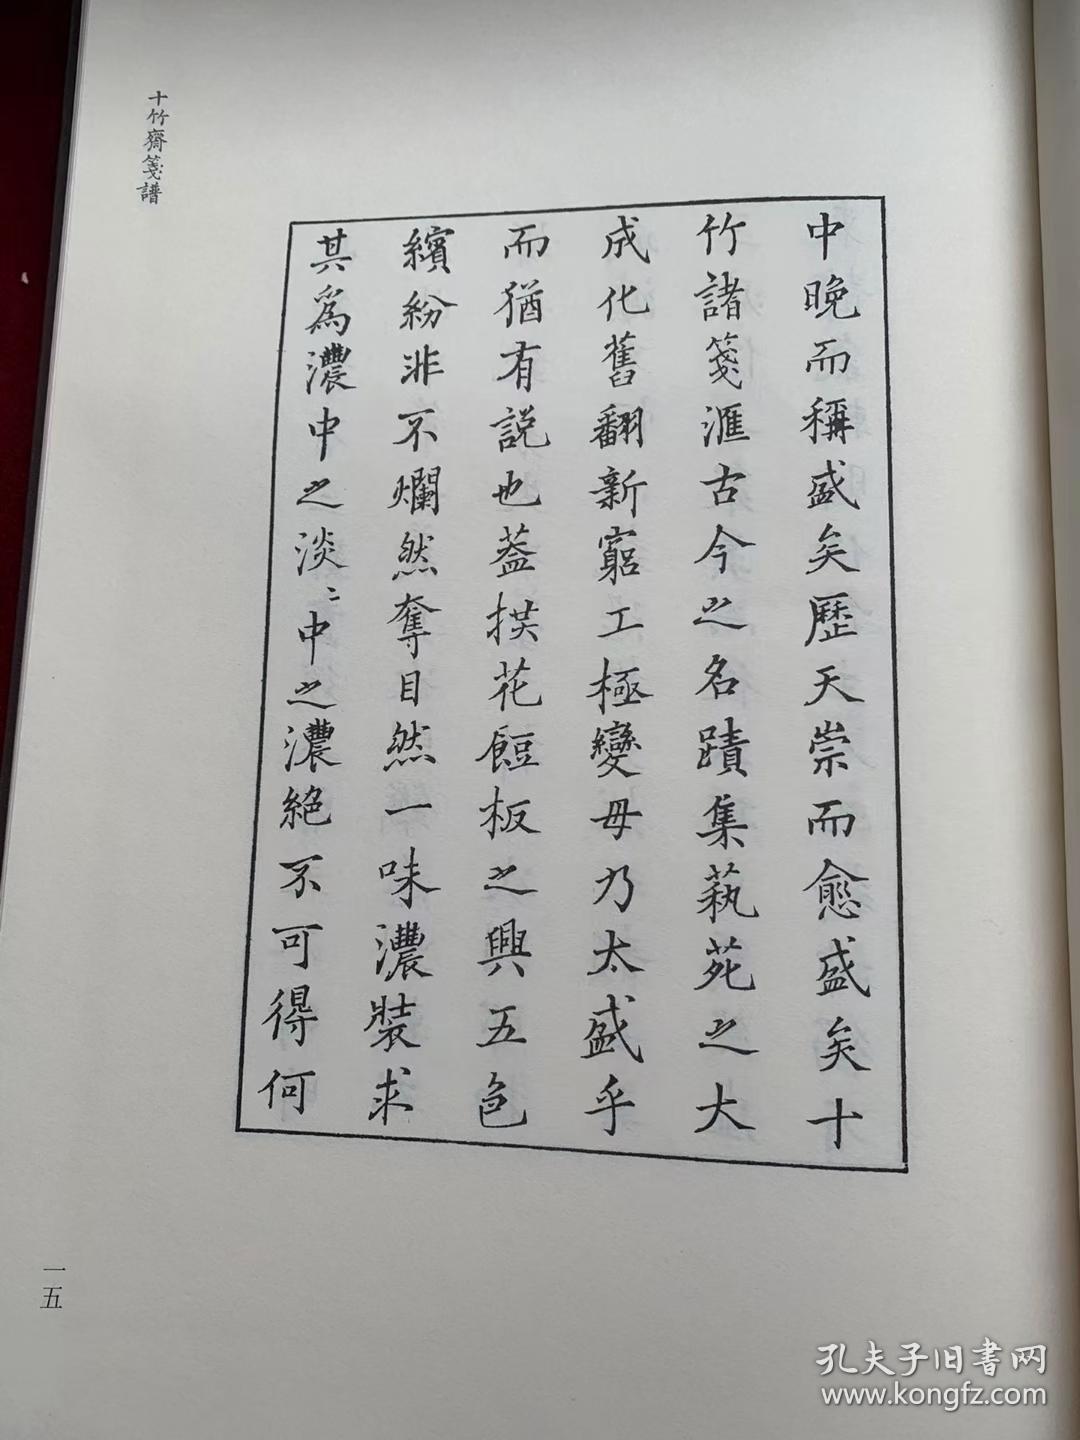 十竹齋箋譜
中晚而稱盛矣歷天崇而愈盛矣十
竹諸箋滙古今之名蹟集蓺苑之大
成化舊翻新窮工極變毋乃太盛乎
而猶有說也蓋拱花餖板之興五色
繽紛非不爛然奪目然一味濃裝求
其爲濃中之淡〻中之濃絕不可得何
一五
孔夫子旧書网
www.kongfz.com